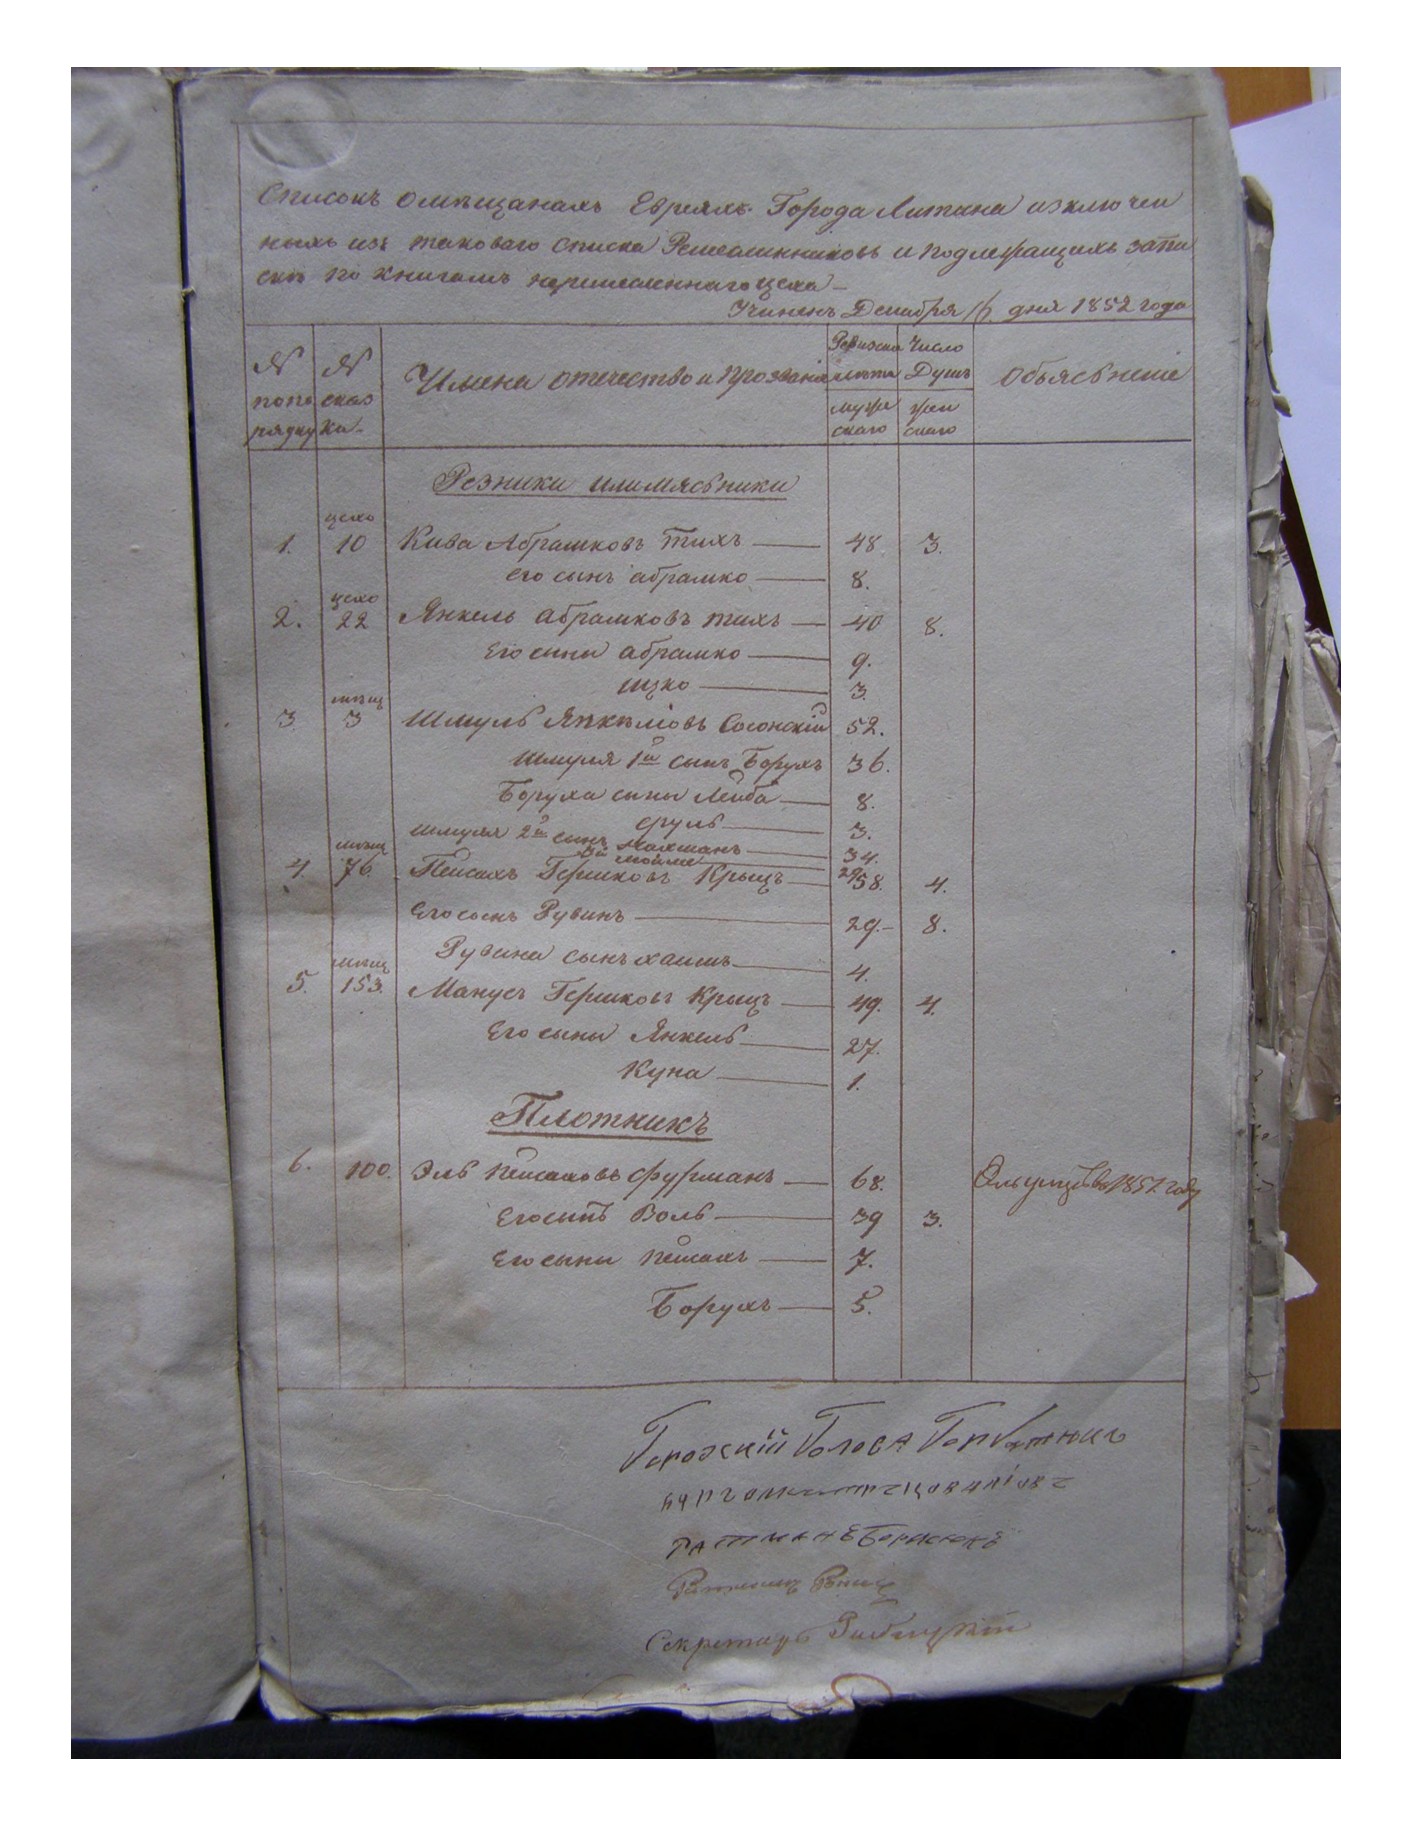 Списокъ омещанахъ Евреяхъ Города Литина изключен
ныхъ изъ таковаго списка Ремесленниковъ и подлежащихъ запи
скъ по книгамъ неремесленнаго цеха
Учиненъ Декабря 16 дня 1852 года
№ попо рядку
№ сказ ка
Имена отечество и прозванія
Ревизска лета
Число Душъ
мужескаго
женскаго
Объясвненіе
Резники илимясвники
цехо
1. 10 Кива Абрашковъ Тихъ 48 3.
его сынъ абрамко 8.
цехо
2. 22 Янкель абрамковъ тихъ 40 8.
Его сыны абрамко 9.
ицко 3.
мещ
3 3 Шмуль Янкеліовъ Сосонскій 52.
Шмуля 1й сынъ Борухъ 36.
Боруха сыны Лейба 8.
сруль 3.
шмуля 2й сынъ Нахманъ 34.
3й мошко 29
мещ
4 76. Пейсахъ Гершковъ Крыцъ 58. 4.
Его сынъ Рувинъ 29. 8.
Рувина сынъ хаимъ 4.
мещ
5. 153. Манусъ Гершковъ Крыцъ 49. 4.
Его сыны Янкель 27.
Куна 1.
Плотникъ
6. 100 Эль пейсаховъ фурманъ 68. 1852 году
Его сынъ Воль 39 3.
Его сыны пейсахъ 7.
Борухъ 5.
Городскій Голова
Ратманъ Борисюкъ
Ратманъ
Секретарь